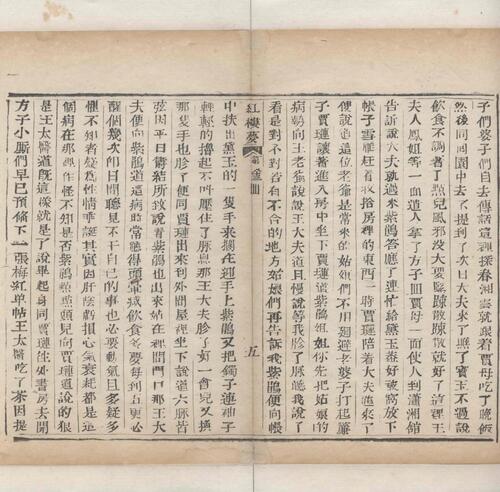 子們婆子們自去傳話這裡探春湘雲就跟了賈母吃了晚飯
然後同回園中去了不提到了次日大夫來了瞧了寳玉不過說
飲食不調着了點兒風邪没大要緊踈散踈散就好了這裡王
夫人鳳姐等一面遣人拿了方子回賈母一面使人到瀟湘館
告訴說大夫就過來紫鵑答應了連忙給黛玉盖好被窩放下
帳子雪雁赶着收拾房裡的東西一時賈璉陪着大夫進來了
便說道這位老爺是常來的姑娘們不用廻避老婆子打起簾
子賈璉讓着進入房中坐下賈璉道紫鵑姐姐你先把姑娘的
病勢向王老爺說說王大夫道且慢說等我胗了脉聽我說了
看是對不對若有不合的地方姑娘們再告訴我紫鵑便向帳
紅樓夢
五
中扶出黛玉的一隻手來擱在迎手上紫鵑又把鐲子連袖子
輕輕的擼起不叫壓住了脉息那王大夫胗了好一會兒又換
那隻手也胗了便同賈璉出來到外間屋裡坐下說道六脉皆
弦因平日鬱結所致說着紫鵑也出來站在裡間門口那王大
夫便向紫鵑道這病時常應得頭暈减飲食多夢每到五更必
醒個幾次卽日間聽見不干自己的事也必要動氣且多疑多
懼不知者疑爲性情乖誕其實因肝陰虧損心氣衰耗都是這
個病在那裡作怪不知是否紫鵑點點頭兒向賈璉道說的狠
是王太醫道旣這樣就是了說畢起身同賈璉往外書房去開
方子小厮們早已預偹下一張梅紅单帖王太醫吃了茶因提